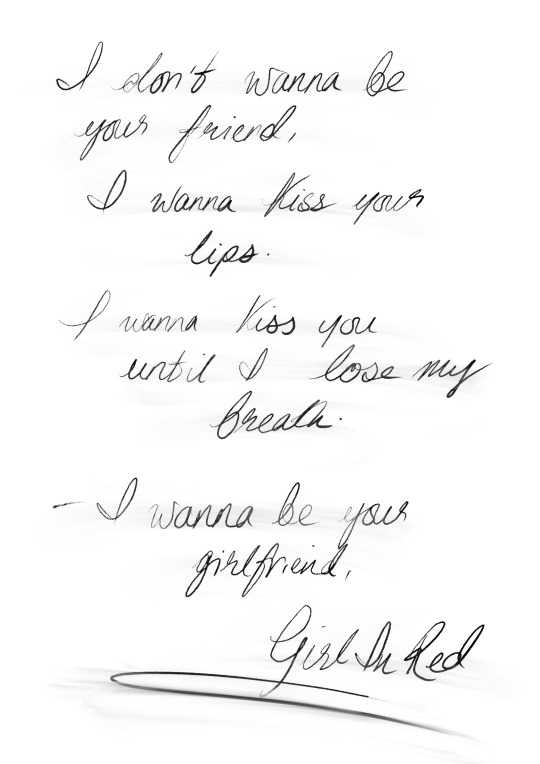 I don't wanna be
your friend,
I wanna kiss your
lips.
I wanna kiss you
until I lose my
breath.
- I wanna be your
girlfriend,
Girl In Red